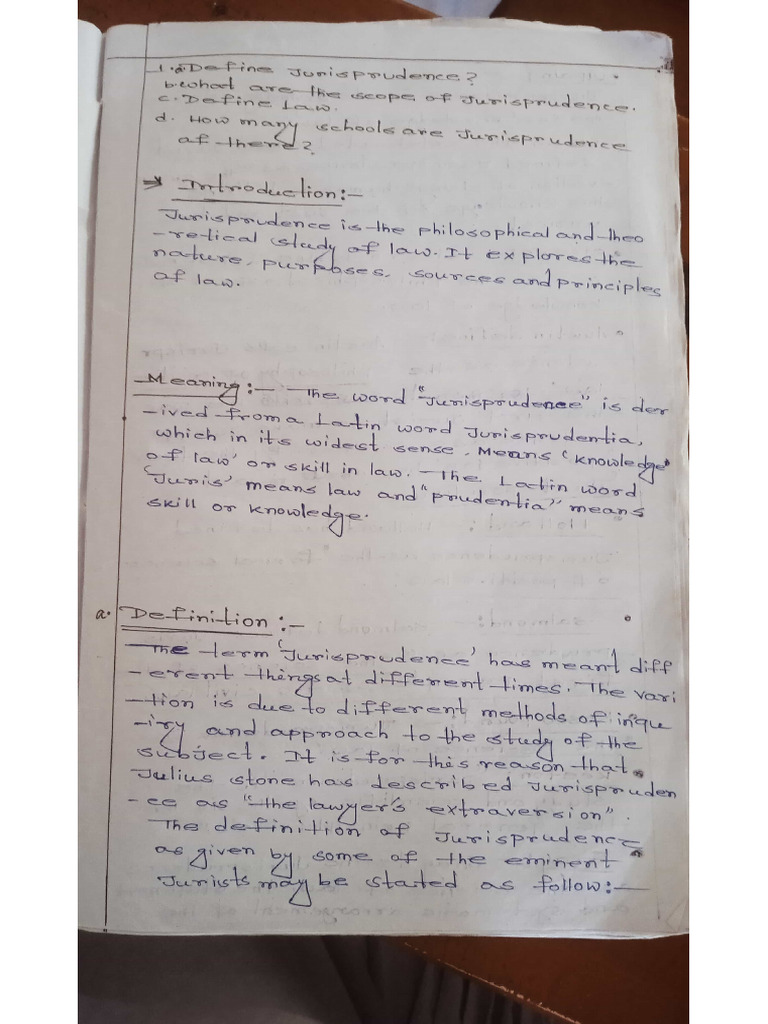 1.a Define Jurisprudence?
b. What are the scope of Jurisprudence.
c. Define Law.
d. How many schools are Jurisprudence
af there?
→ Introduction:-
Jurisprudence is the philosophical and theo
-retical study of law. It explores the
nature, purposes, sources and principles
of law.
Meaning:- The word "Jurisprudence" is der
-ived from a Latin word Jurisprudentia,
which in its widest sense, Means 'knowledge
of law' or skill in law. The Latin word
'Juris' means law and "prudentia" means
skill or knowledge.
a. Definition:-
The term 'Jurisprudence' has meant diff
-erent things at different times. The vari
-tion is due to different methods of inque
-iry and approach to the study of the
subject. It is for this reason that
Julius stone has described Jurispruden
-ce as "the lawyer's extraversion".
The definition of Jurisprudence
as given by some of the eminent
Jurists may be started as follow:-